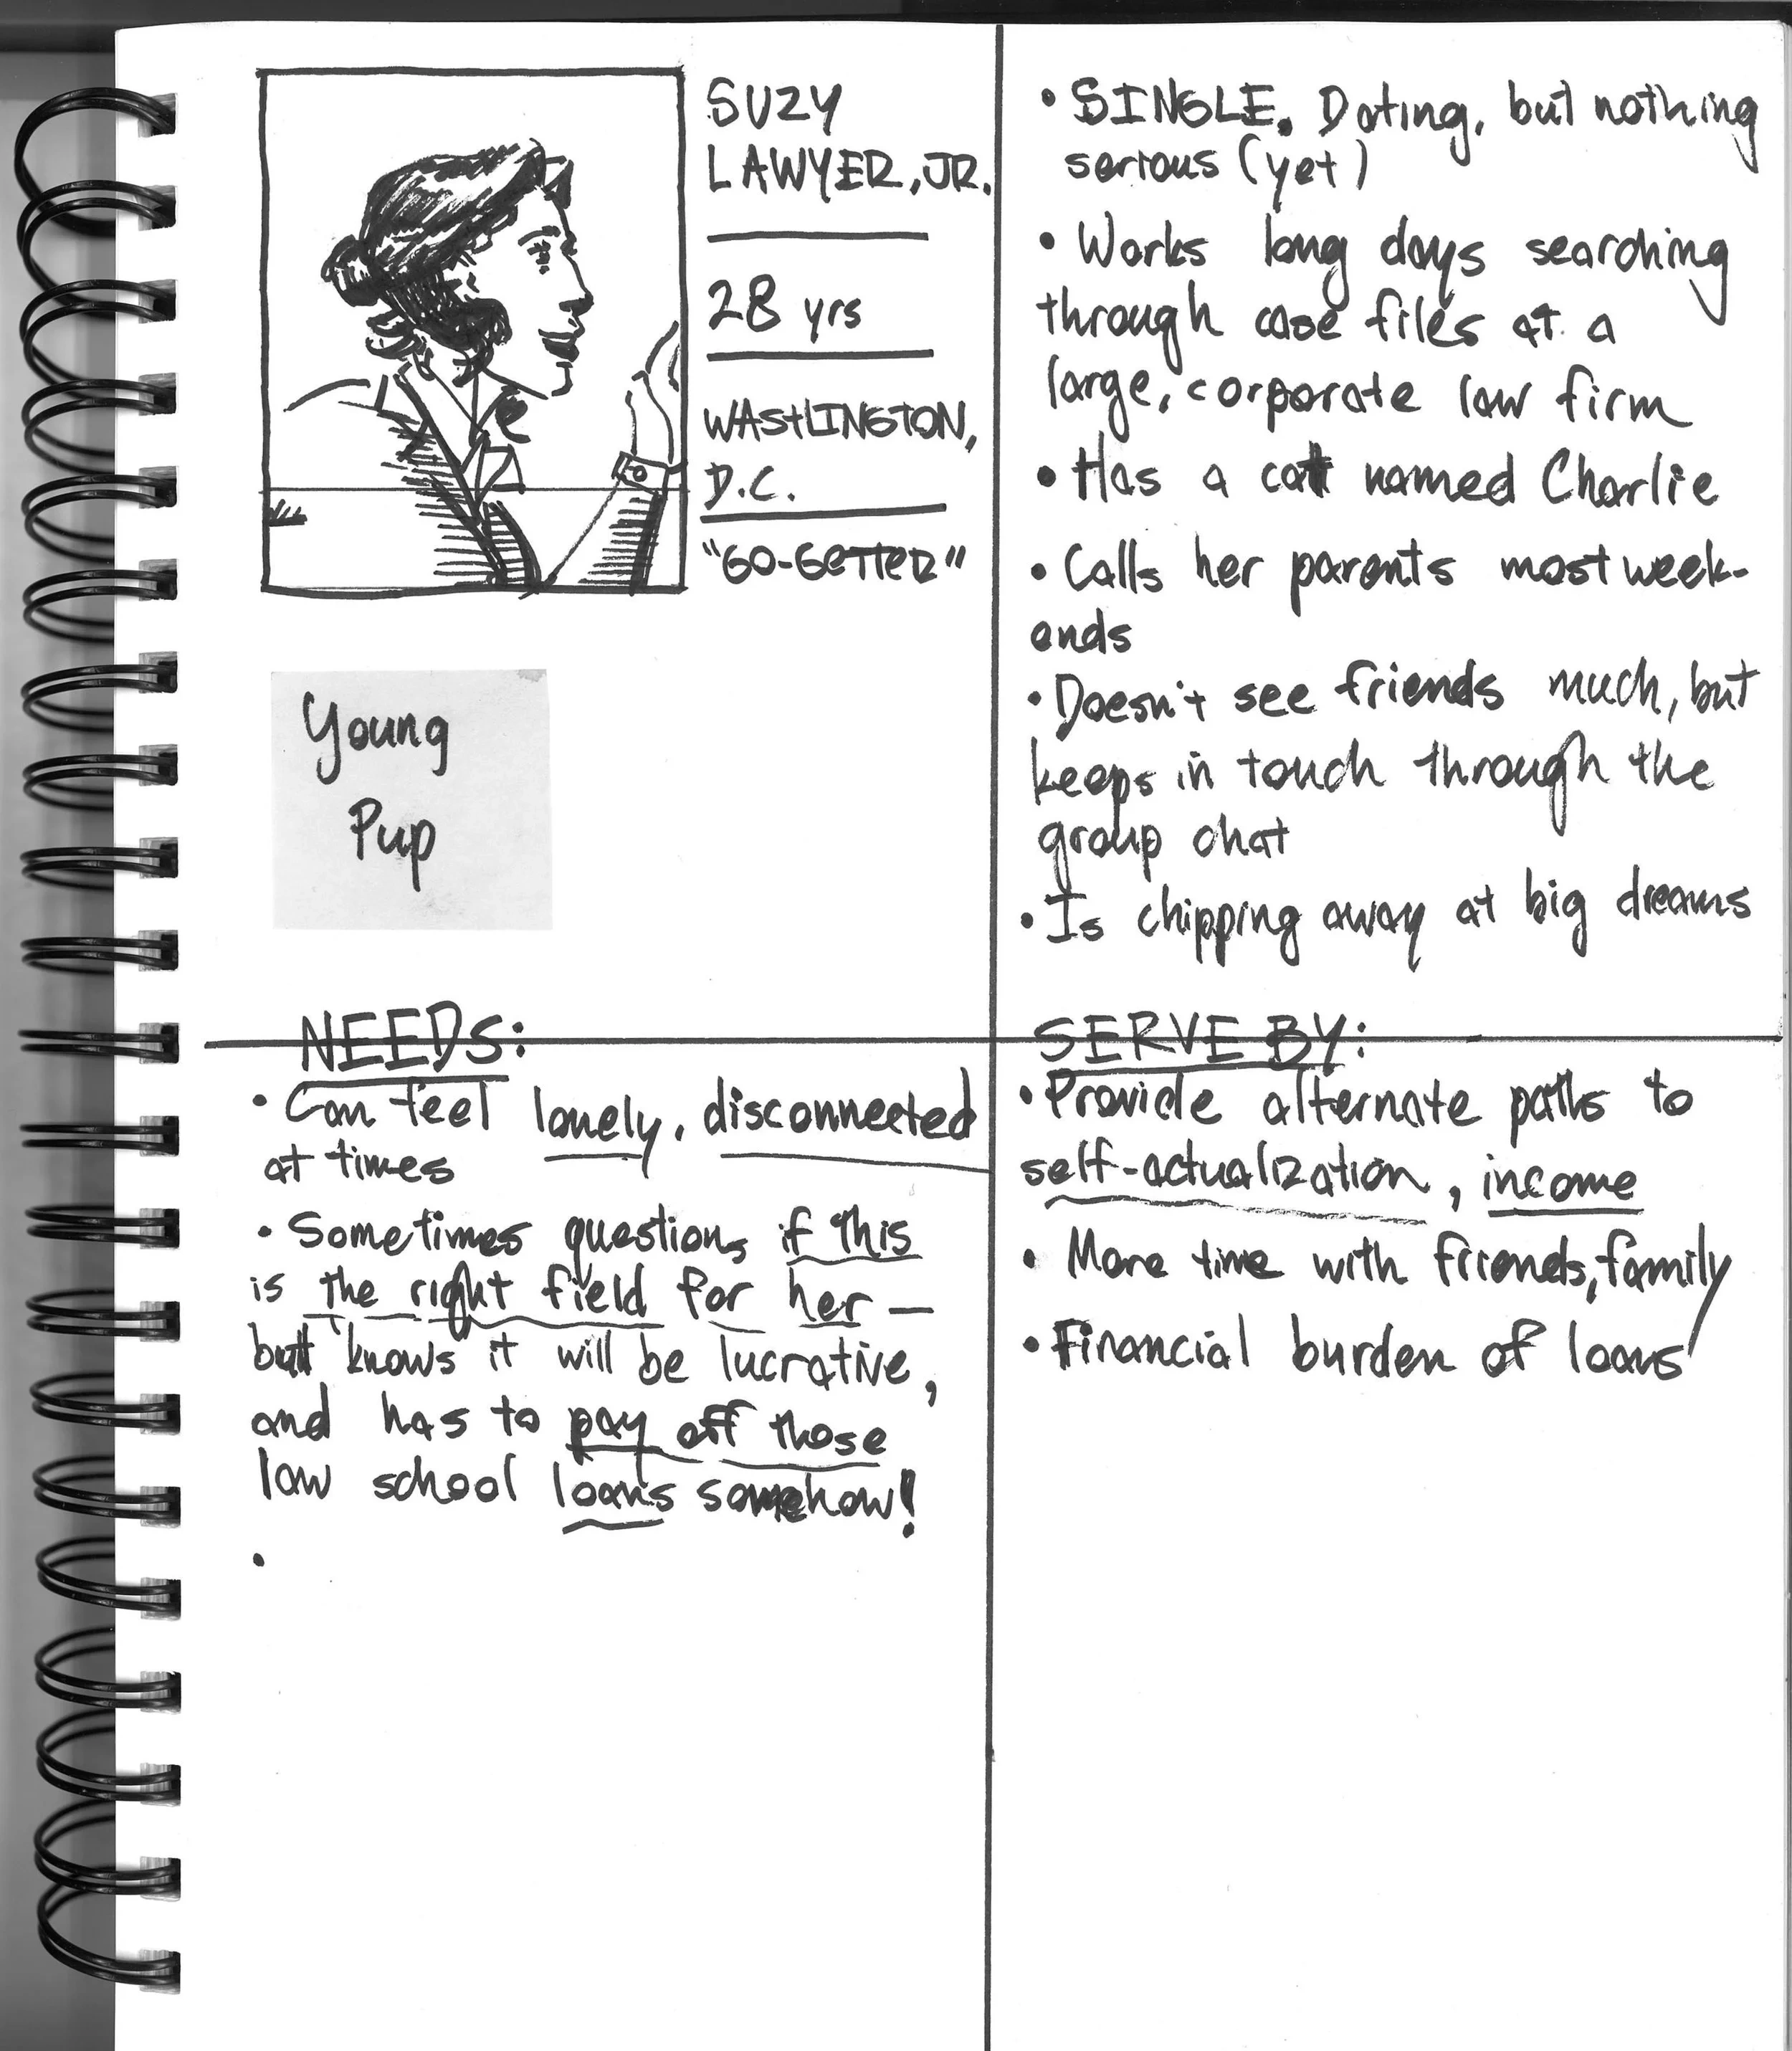 SUZY
LAWYER, JR.
28 yrs
WASHINGTON,
D.C.
"GO-GETTER"
Young
Pup
• SINGLE. Dating, but nothing
serious (yet)
• Works long days searching
through case files at a
large, corporate law firm
• Has a cat named Charlie
• Calls her parents most week-
ends
• Doesn't see friends much, but
keeps in touch through the
group chat
• Is chipping away at big dreams
NEEDS:
• Can feel lonely, disconnected
at times
• Sometimes questions if this
is the right field for her —
but knows it will be lucrative,
and has to pay off those
law school loans somehow!
•
SERVE BY:
• Provide alternate paths to
self-actualization, income
• More time with friends, family
• Financial burden of loans